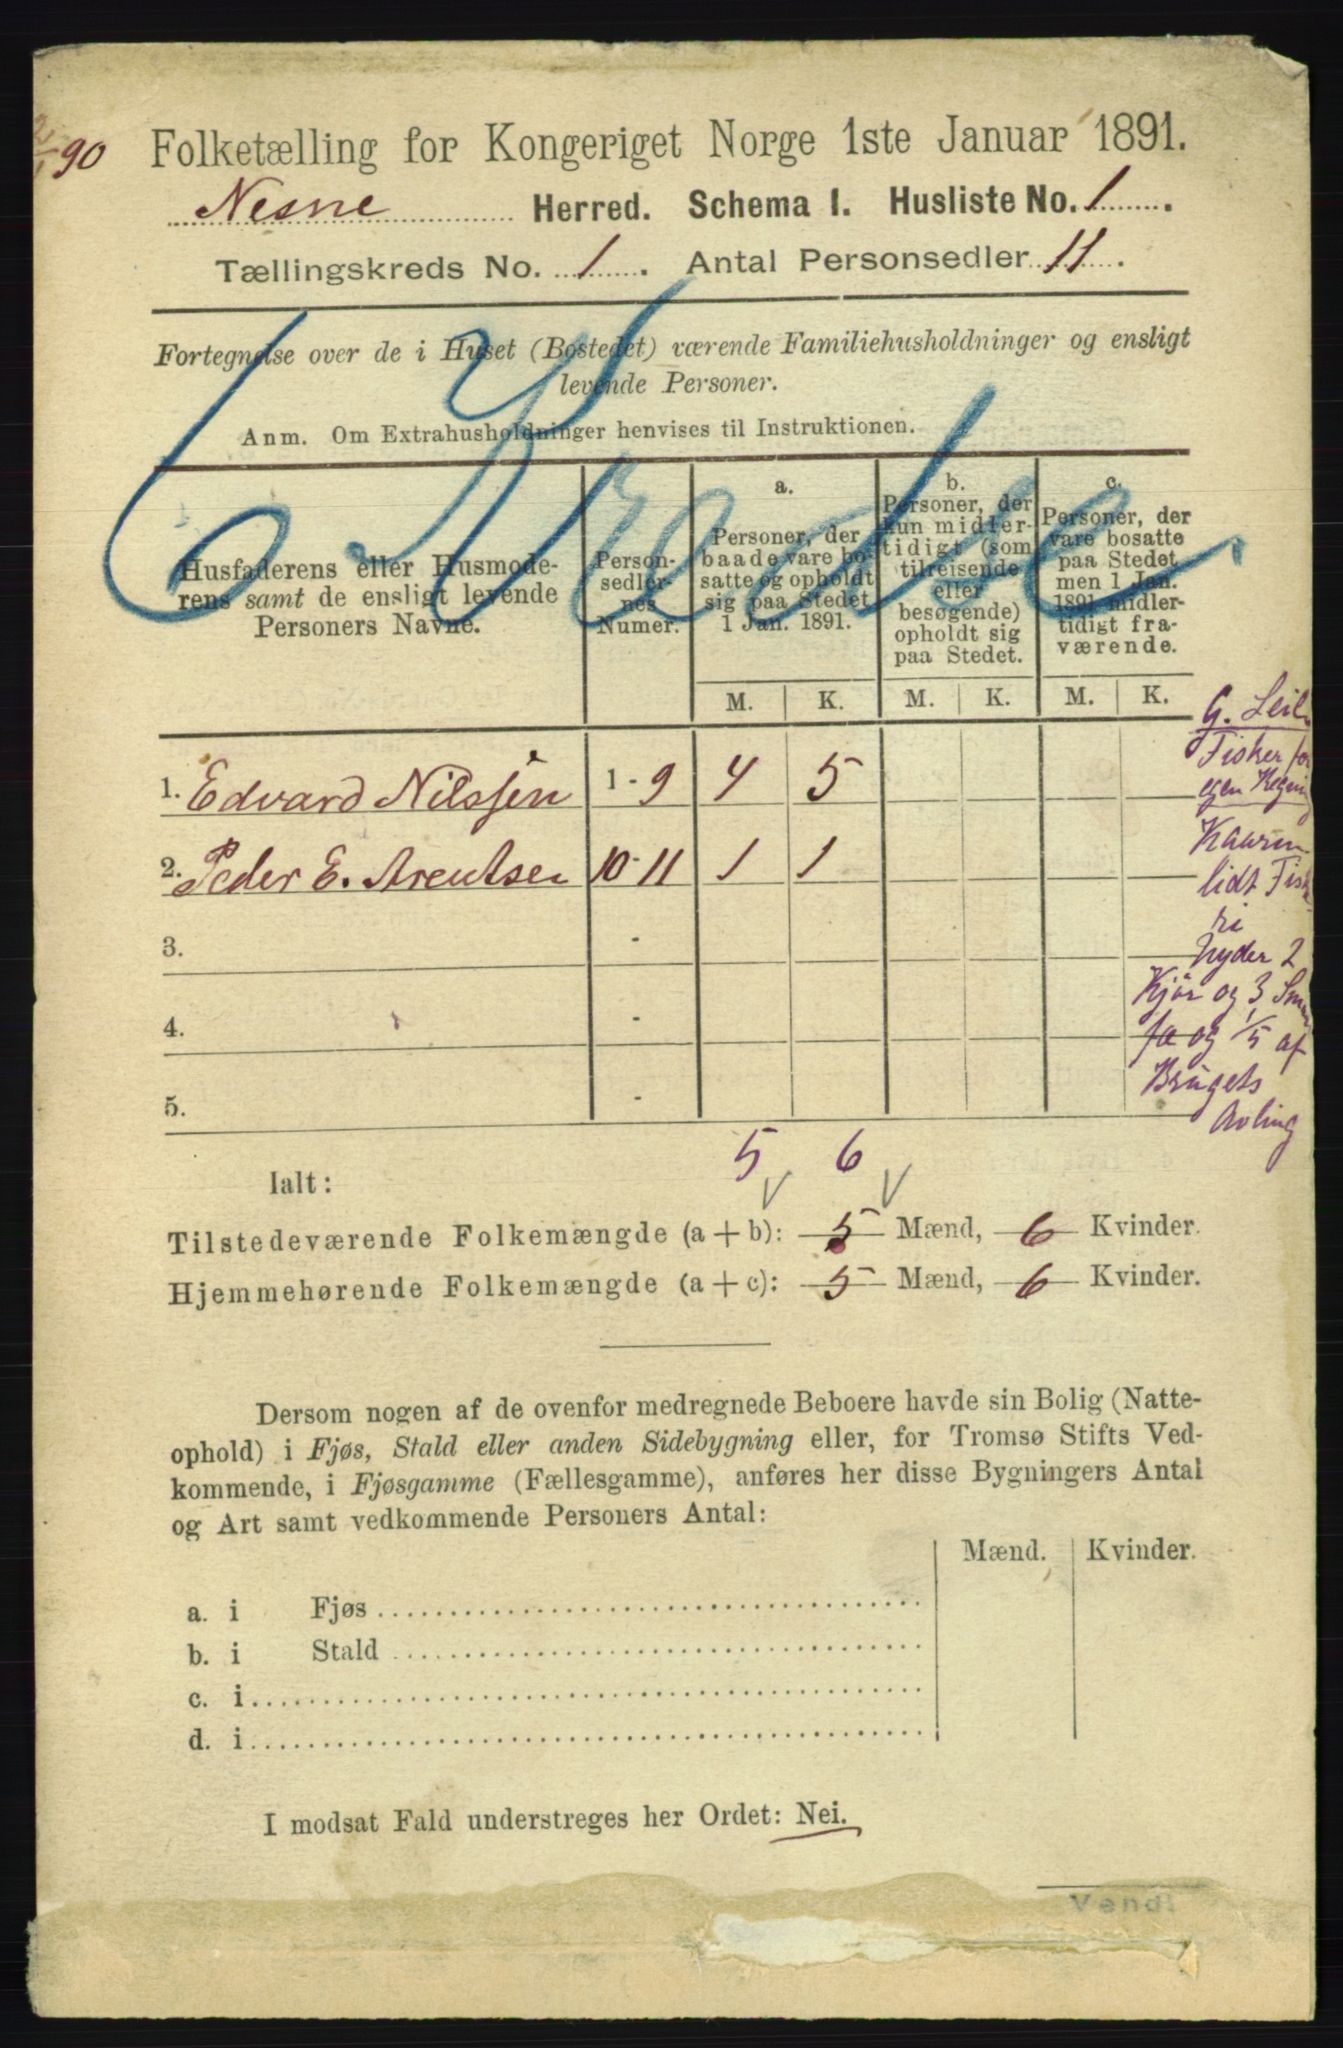 90
Folketælling for Kongeriget Norge 1ste Januar 1891.
Nesne Herred. Schema I. Husliste No. 1.
Tællingskreds No. 1. Antal Personsedler 11.
Fortegnelse over de i Huset (Bostedet) værende Familiehusholdninger og ensligt
levende Personer.
Anm. Om Extrahusholdninger henvises til Instruktionen.
Husfaderens eller Husmode-
rens samt de ensligt levende
Personers Navne.
Person-
sedler-
nes
Numer.
a.
Personer, der
baade vare bo-
satte og opholdt
sig paa Stedet
1 Jan. 1891.
b.
Personer, der
kun midler-
tidigt (som
tilreisende
eller
besøgende)
opholdt sig
paa Stedet.
c.
Personer, der
vare bosatte
paa Stedet
men 1 Jan.
1891 midler-
tidigt fra-
værende.
M. K. M. K. M. K.
1. Edvard Nilssen 1 - 9 4 5
2. Peder E. Arentsen 10 - 11 1 1
3. -
4. -
5. -
G. Leil
Fisker for
egen Regning
lidt Fiske
ri
nyder 2
Kjör og 3 Smaa
fæ og 1/5 af
Brugets
Avling
5 6
Ialt:
Tilstedeværende Folkemængde (a + b): 5 Mænd, 6 Kvinder.
Hjemmehørende Folkemængde (a + c): 5 Mænd, 6 Kvinder.
Dersom nogen af de ovenfor medregnede Beboere havde sin Bolig (Natte-
ophold) i Fjøs, Stald eller anden Sidebygning eller, for Tromsø Stifts Ved-
kommende, i Fjøsgamme (Fællesgamme), anføres her disse Bygningers Antal
og Art samt vedkommende Personers Antal:
Mænd. Kvinder.
a. i Fjøs
b. i Stald
c. i
d. i
I modsat Fald understreges her Ordet: Nei.
Vend!